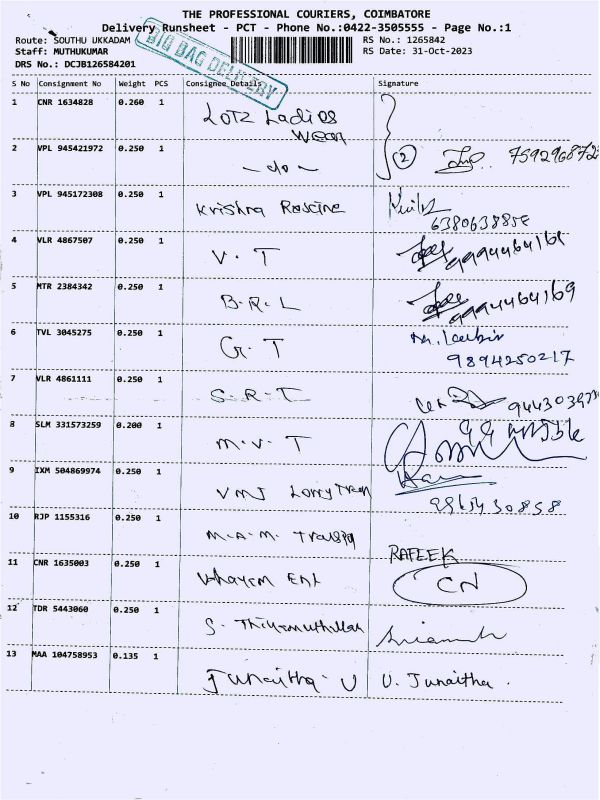 THE PROFESSIONAL COURIERS, COIMBATORE
Delivery Runsheet - PCT - Phone No.:0422-3505555 - Page No.:1
Route: SOUTHU UKKADAM
RS No.: 1265842
Staff: MUTHUKUMAR
RS Date: 31-Oct-2023
DRS No.: DCJB126584201
BIG BAG DELIVERY
S No Consignment No Weight PCS Consignee Details Signature
1 CNR 1634828 0.260 1 Lotz Ladies Wear
2 VPL 945421972 0.250 1 - do - 2
3 VPL 945172308 0.250 1 Krishna 6380638858
4 VLR 4867507 0.250 1 V. T
5 MTR 2384342 0.250 1 B.R.L 9994464169
6 TVL 3045275 0.250 1 G. T 9894250217
7 VLR 4861111 0.250 1 S.R.T
8 SLM 331573259 0.200 1 M.V.T
9 IXM 504869974 0.250 1 VMJ Lorry
10 RJP 1155316 0.250 1 M.A.M. RAFEEK
11 CNR 1635003 0.250 1 CN
12 TDR 5443060 0.250 1 S.
13 MAA 104758953 0.135 1 Junaitha. U U. Junaitha.